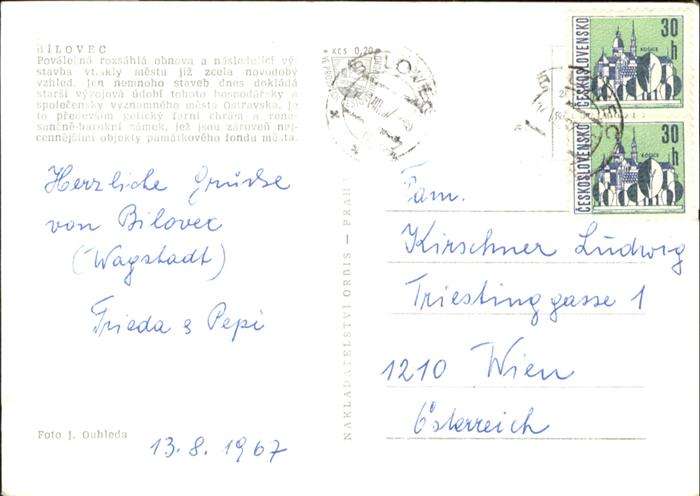 BÍLOVEC
Poválečná rozsáhlá obnova a následující vý-
stavba vtiskly městu již zcela novodobý
vzhled. Jen nemnoho staveb dnes dokládá
starší vývojová údobí tohoto hospodářsky a
společensky významného města Ostravska. Je
to především gotický farní chrám a rene-
sančně-barokní zámek, jež jsou zároveň nej-
cennějšími objekty památkového fondu města.
Herzliche Grüsse
von Bilovec
(Wagstadt)
Frieda & Pepi
Foto J. Ouhleda
13.8.1967
NAKLADATELSTVÍ ORBIS — PRAHA
XCS 0,20
BÍLOVEC
ČESKOSLOVENSKO
30
h
KOŠICE
ČESKOSLOVENSKO
30
h
KOŠICE
Fam.
Kirschner Ludwig
Triestinggasse 1
1210 Wien
Österreich